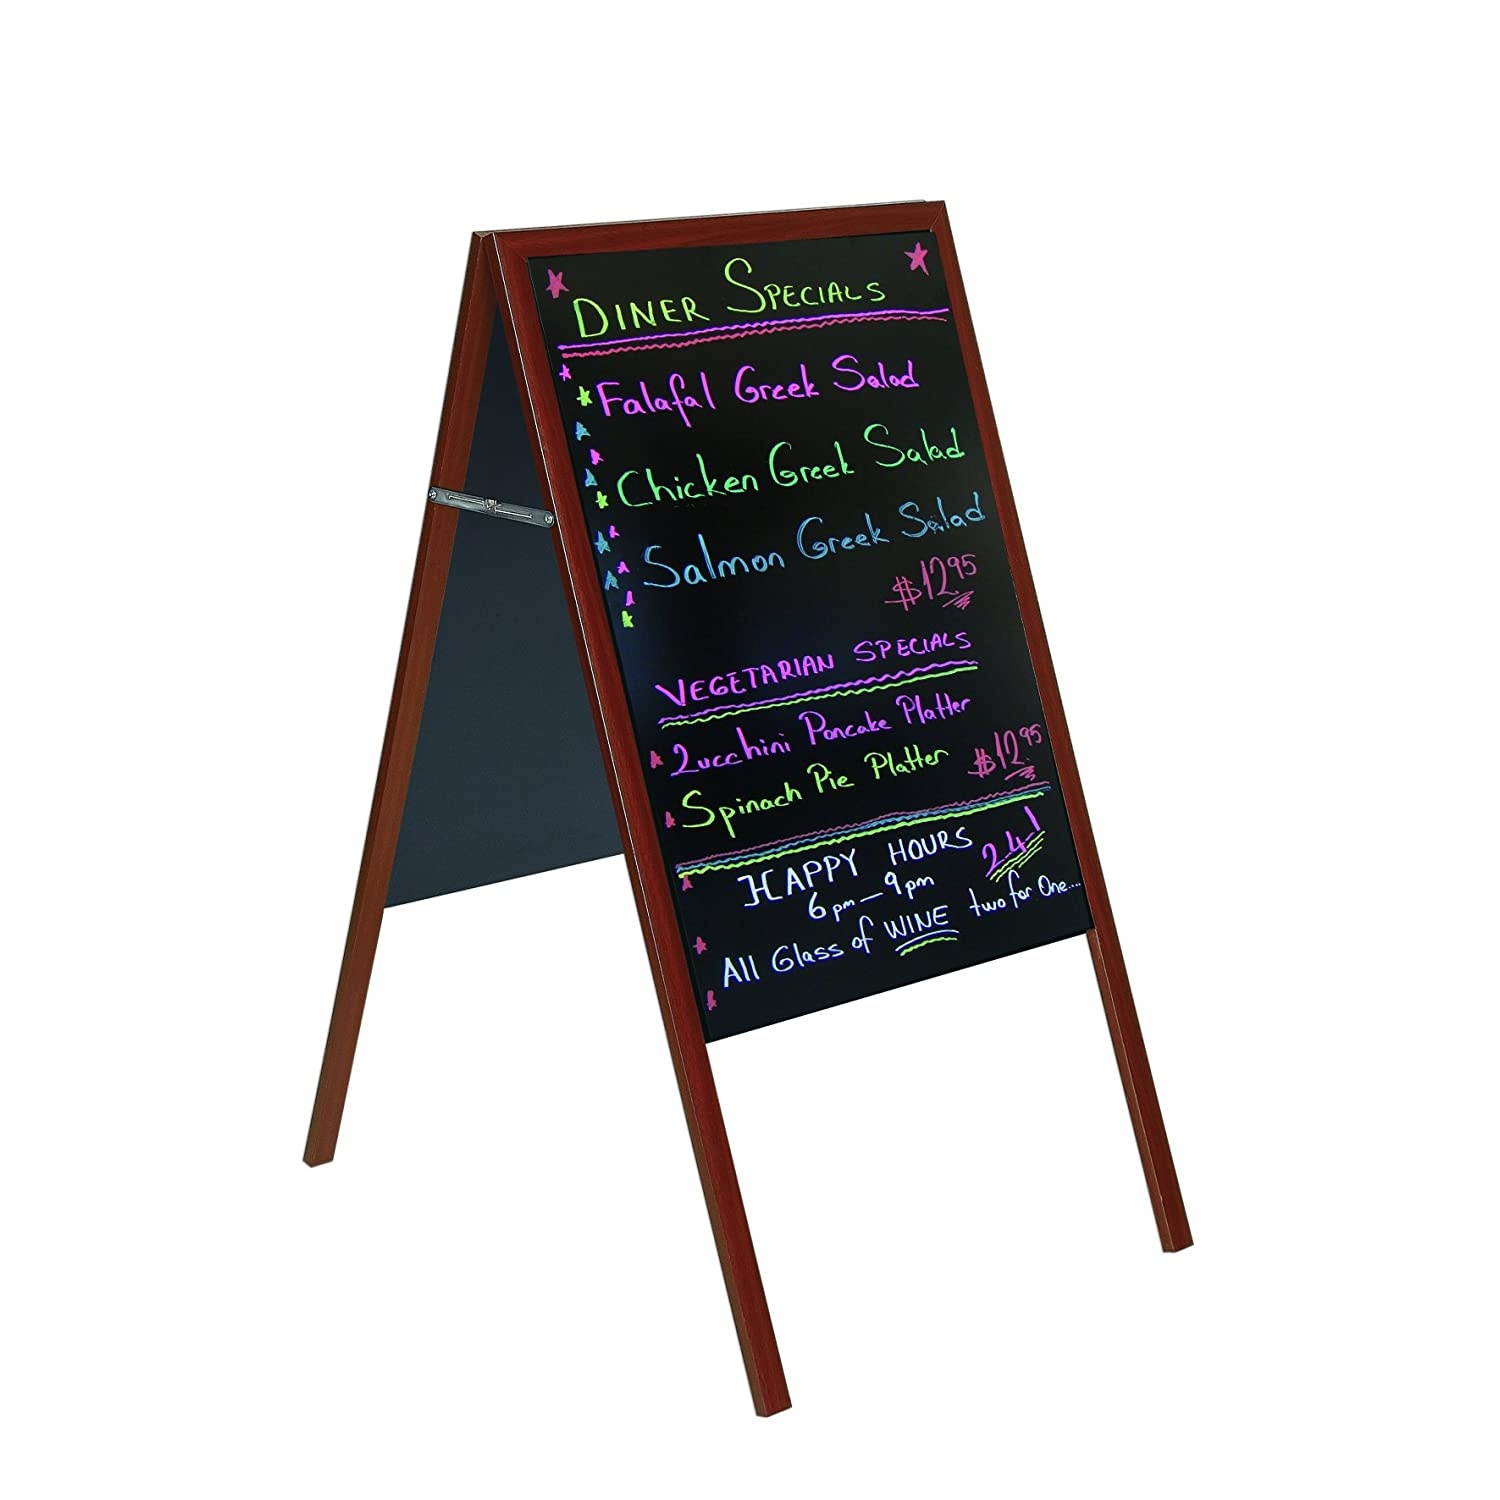 DINER SPECIALS
Falafal Greek Salad
Chicken Greek Salad
Salmon Greek Salad
$12.95
VEGETARIAN SPECIALS
Zucchini Pancake Platter
Spinach Pie Platter $12.95
HAPPY HOURS 2.4.1
6pm-9pm
All Glass of WINE two for One....